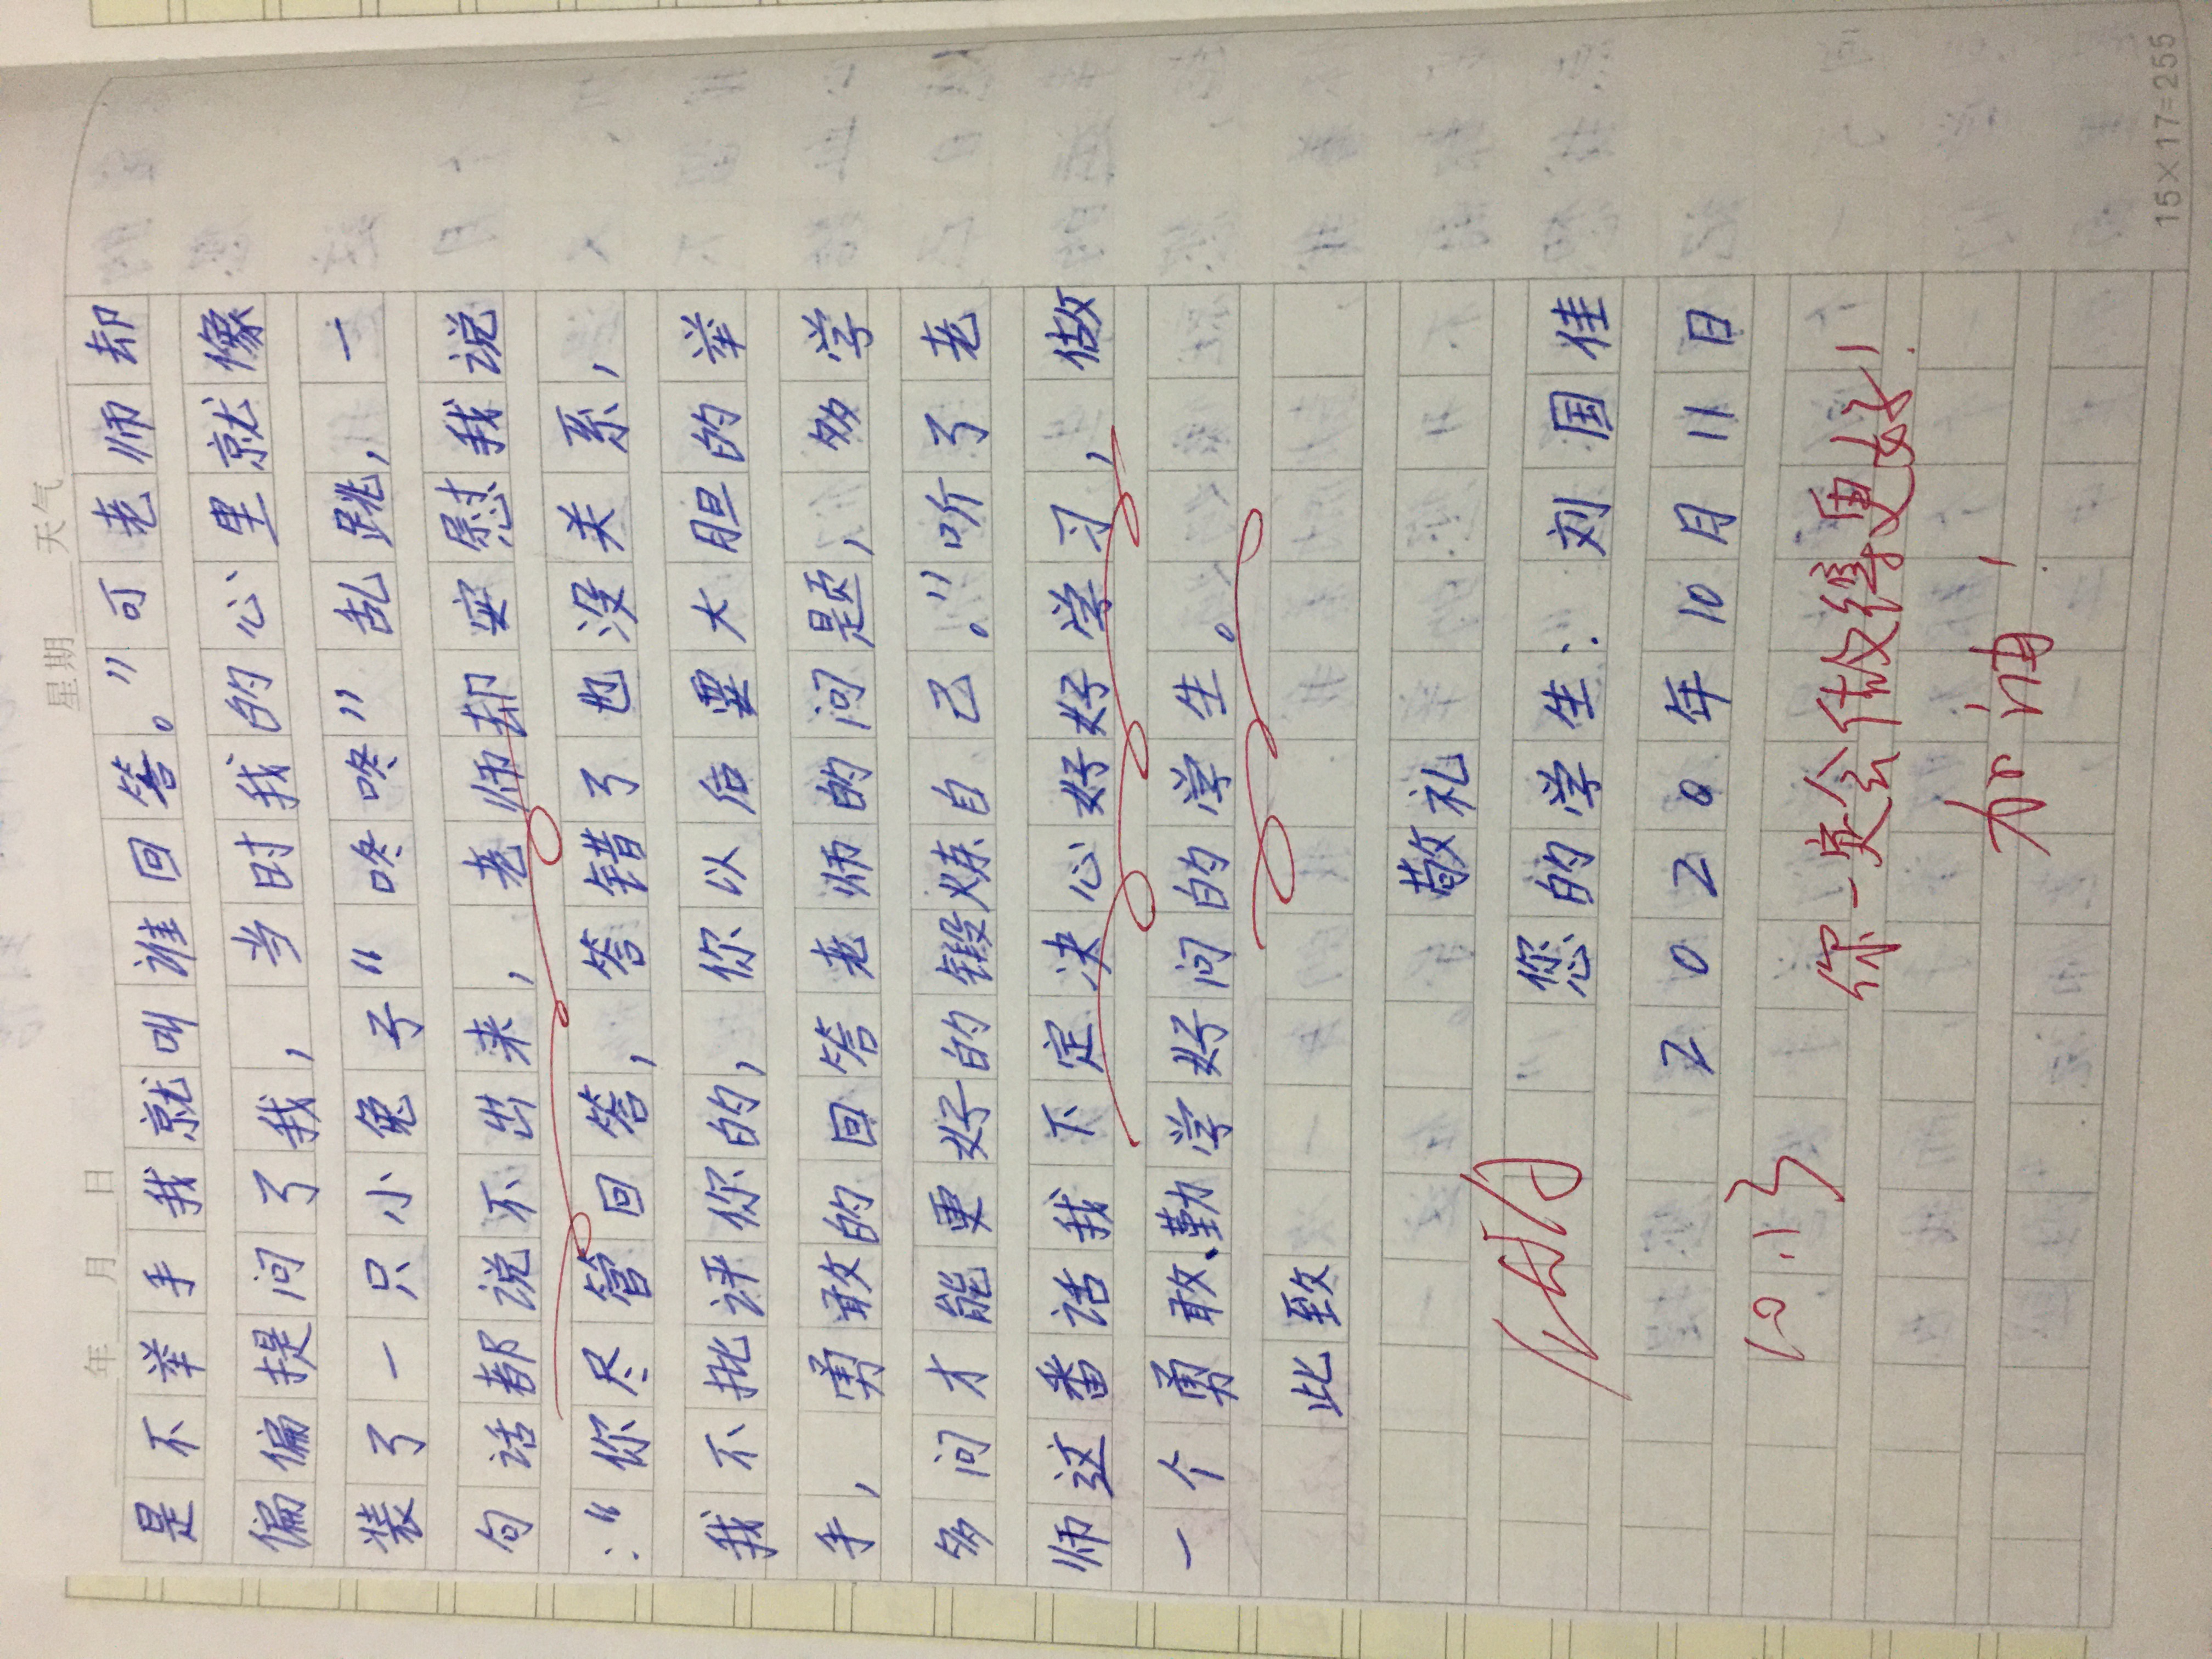 年 月 日 星期 天气
是不举手我就叫谁回答。”可老师却
偏偏提问了我,当时我的心里就像
装了一只小兔子“咚咚”乱跳,一
句话都说不出来,老师却安慰我说
:“你尽管回答,答错了也没关系,
我不批评你的,你以后要大胆的举
手,勇敢的回答老师的问题,多学
多问才能更好的锻炼自己。”听了老
师这番话我下定决心好好学习,做
一个勇敢、勤学好问的学生。
此致
敬礼
您的学生:刘国佳
2020年10月11日
10.13
你一定会做得更好!
加油!
15×17=255